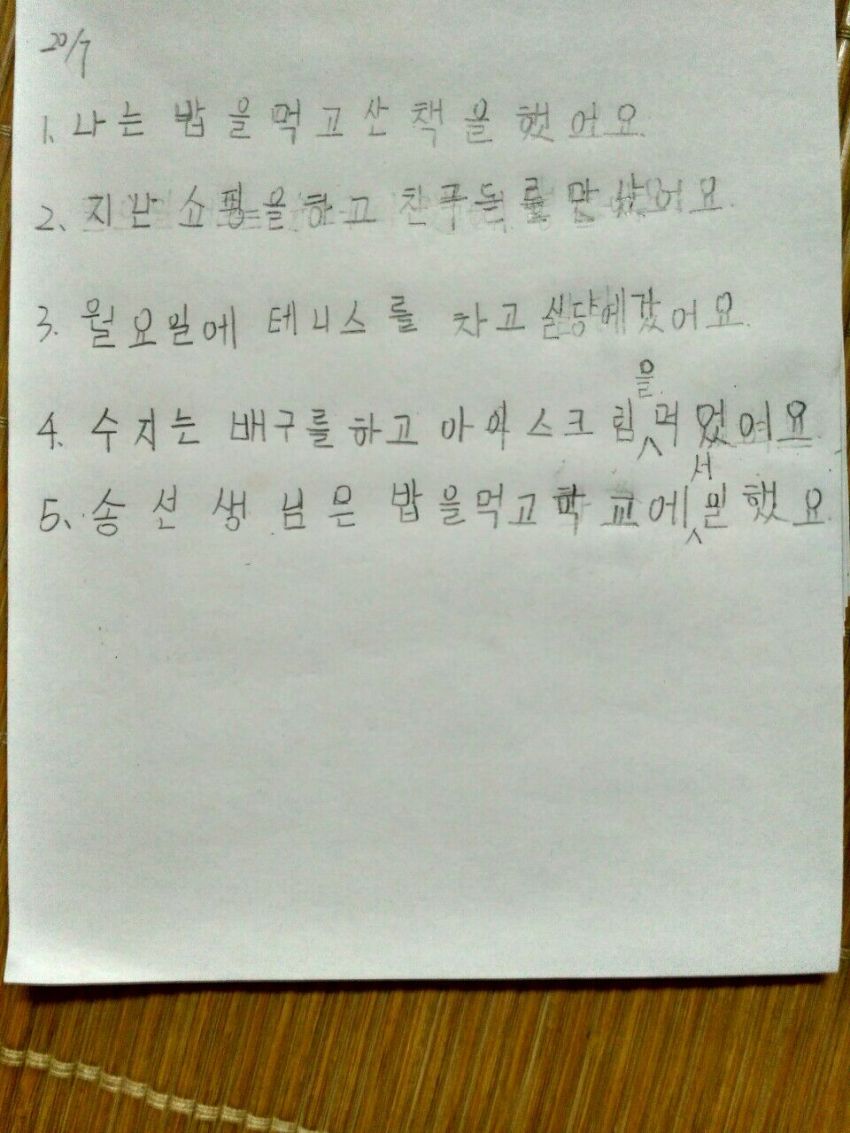 20/7
1. 나는 밥을 먹고 산책을 했어요.
2. 지난 쇼핑을 하고 친구들를 만났어요.
3. 월요일에 테니스를 차고 식당에 갔어요.
4. 수지는 배구를 하고 아이스크림을 먹었어요
5. 송 선생님은 밥을 먹고 학교에서 일했요